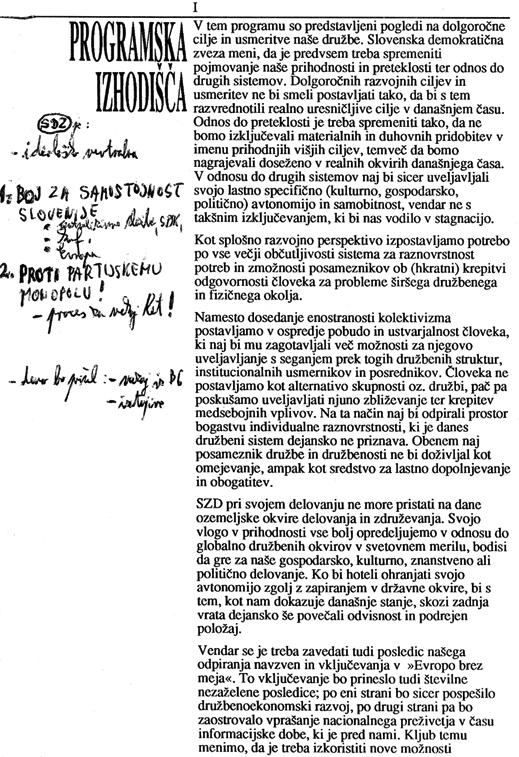 I
PROGRAMSKA
IZHODIŠČA
SDZ je:
1. BOJ ZA SAMOSTOJNOST
SLOVENIJE
Evropa
2. PROTI PARTIJSKEMU
MONOPOLU!
- proces za več let!
V tem programu so predstavljeni pogledi na dolgoročne
cilje in usmeritve naše družbe. Slovenska demokratična
zveza meni, da je predvsem treba spremeniti
pojmovanje naše prihodnosti in preteklosti ter odnos do
drugih sistemov. Dolgoročnih razvojnih ciljev in
usmeritev ne bi smeli postavljati tako, da bi s tem
razvrednotili realno uresničljive cilje v današnjem času.
Odnos do preteklosti je treba spremeniti tako, da ne
bomo izključevali materialnih in duhovnih pridobitev v
imenu prihodnjih višjih ciljev, temveč da bomo
nagrajevali doseženo v realnih okvirih današnjega časa.
V odnosu do drugih sistemov naj bi sicer uveljavljali
svojo lastno specifično (kulturno, gospodarsko,
politično) avtonomijo in samobitnost, vendar ne s
takšnim izključevanjem, ki bi nas vodilo v stagnacijo.
Kot splošno razvojno perspektivo izpostavljamo potrebo
po vse večji občutljivosti sistema za raznovrstnost
potreb in zmožnosti posameznikov ob (hkratni) krepitvi
odgovornosti človeka za probleme širšega družbenega
in fizičnega okolja.
Namesto dosedanje enostranosti kolektivizma
postavljamo v ospredje pobudo in ustvarjalnost človeka,
ki naj bi mu zagotavljali več možnosti za njegovo
uveljavljanje s seganjem prek togih družbenih struktur,
institucionalnih usmernikov in posrednikov. Človeka ne
postavljamo kot alternativo skupnosti oz. družbi, pač pa
poskušamo uveljavljati njuno zbliževanje ter krepitev
medsebojnih vplivov. Na ta način naj bi odpirali prostor
bogastvu individualne raznovrstnosti, ki je danes
družbeni sistem dejansko ne priznava. Obenem naj
posameznik družbe in družbenosti ne bi doživljal kot
omejevanje, ampak kot sredstvo za lastno dopolnjevanje
in obogatitev.
SZD pri svojem delovanju ne more pristati na dane
ozemeljske okvire delovanja in združevanja. Svojo
vlogo v prihodnosti vse bolj opredeljujemo v odnosu do
globalno družbenih okvirov v svetovnem merilu, bodisi
da gre za naše gospodarsko, kulturno, znanstveno ali
politično delovanje. Ko bi hoteli ohranjati svojo
avtonomijo zgolj z zapiranjem v državne okvire, bi s
tem, kot nam dokazuje današnje stanje, skozi zadnja
vrata dejansko še povečali odvisnost in podrejen
položaj.
Vendar se je treba zavedati tudi posledic našega
odpiranja navzven in vključevanja v »Evropo brez
meja«. To vključevanje bo prineslo tudi številne
nezaželene posledice; po eni strani bo sicer pospešilo
družbenoekonomski razvoj, po drugi strani pa bo
zaostrovalo vprašanje nacionalnega preživetja v času
informacijske dobe, ki je pred nami. Kljub temu
menimo, da je treba izkoristiti nove možnosti